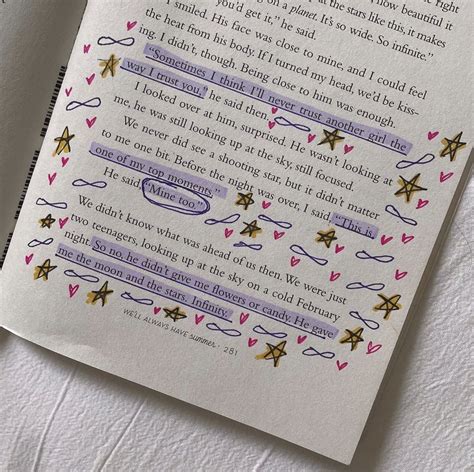 now beautiful it
on a planet. It's so wide. So infinite."
you'd get it," he said.
at the stars like this, it makes
I smiled. His face was close to mine, and I could feel
the heat from his body. If I turned my head, we'd be kiss-
ing. I didn't, though. Being close to him was enough.
"Sometimes I think I'll never trust another girl the
way I trust you," he said then.
I looked over at him, surprised. He wasn't looking at
me, he was still looking up at the sky, still focused.
We never did see a shooting star, but it didn't matter
to me one bit. Before the night was over, I said, "This is
one of my top moments."
He said, "Mine too."
We didn't know what was ahead of us then. We were just
two teenagers, looking up at the sky on a cold February
night. So no, he didn't give me flowers or candy. He gave
me the moon and the stars. Infinity.
WE'LL ALWAYS HAVE SUMMER · 281